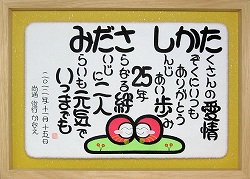 たくさんの愛情
かぞくにいつも
ありがとう
しんじ
あい歩み
25年
さらなる絆
だいじに二人
みらいも元気で
いつまでも
二〇二二年十一月十五日